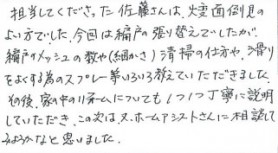 担当してくださった佐藤さんは、大変面倒見の
よい方でした。今回は網戸の張り替えでしたが、
網戸のメッシュの数や(細かさ)清掃の仕方や、滑り
をよくする為のスプレー等いろいろ教えていただきました。
その後、家の中のリフォームについても1つ1つ丁寧に説明
していただき、この次は、ホームアシストさんに相談して
みようかなと思いました。